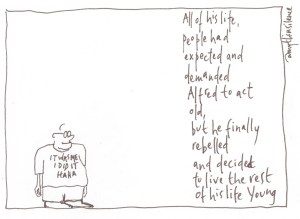 All of his life,
people had
expected and
demanded
Alfred to act
old,
but he finally
rebelled
and decided
to live the rest
of his life Young
IT WASNE
I DID IT
HAHA